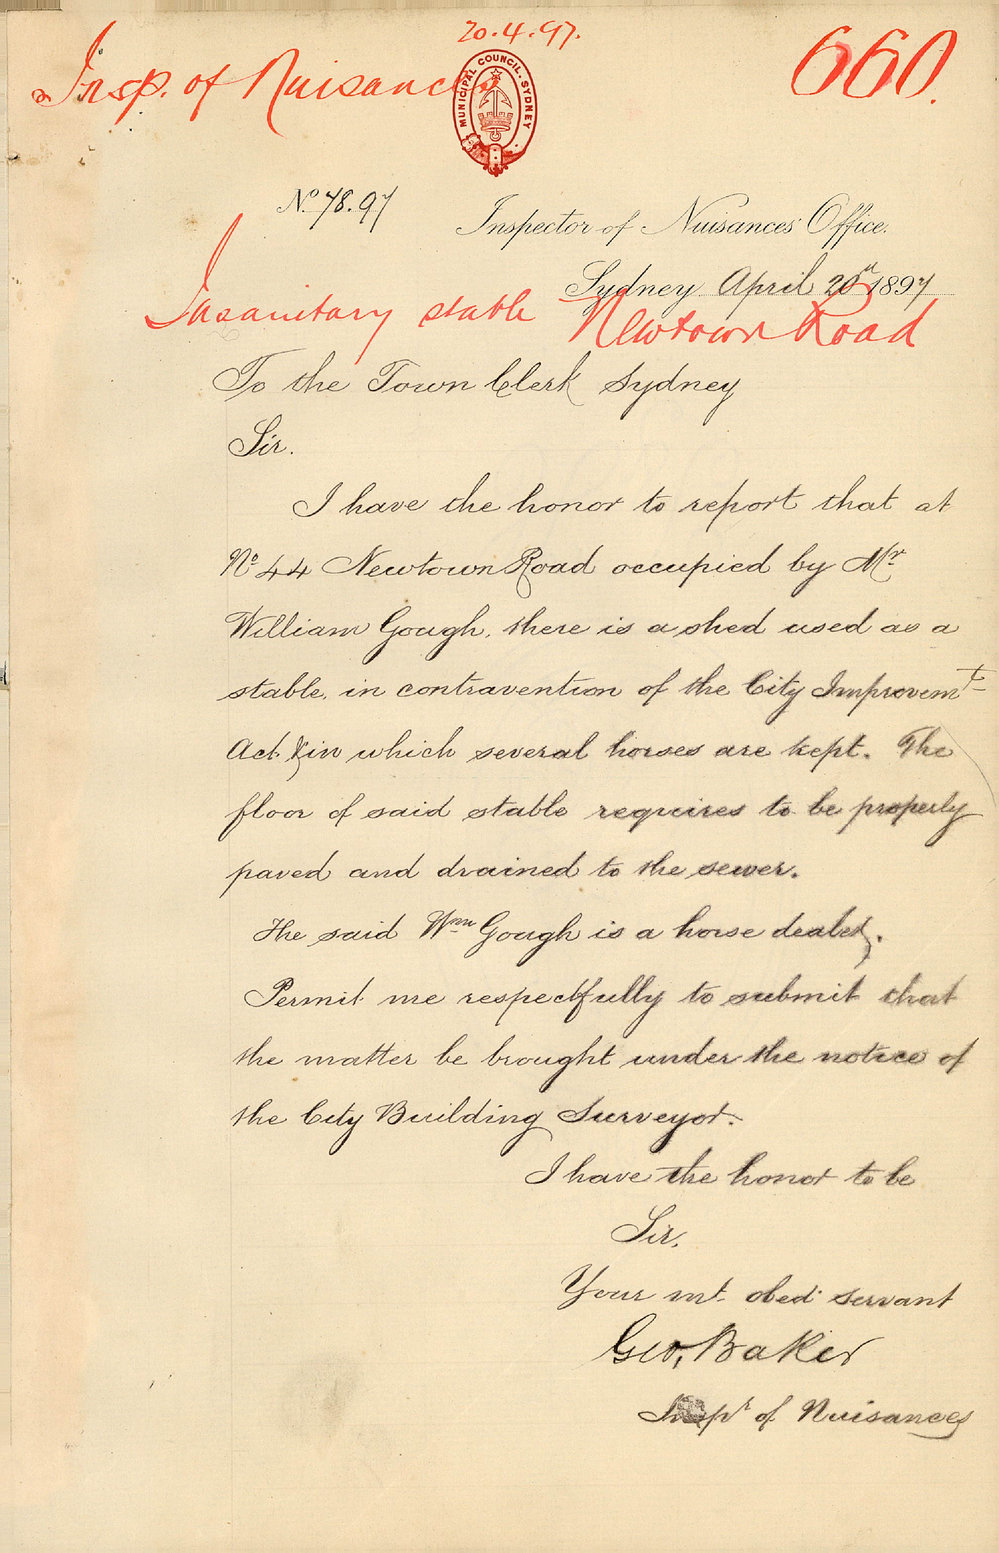 20.4.97.
Insp. of Nuisances
660.
MUNICIPAL COUNCIL. SYDNEY
No. 78.97
Inspector of Nuisances' Office.
Sydney April 20th 1897
Insanitary stable Newtown Road
To the Town Clerk Sydney
Sir.
I have the honor to report that at
No. 44 Newtown Road occupied by Mr
William Gough, there is a shed used as a
stable, in contravention of the City Improvemt
Act. & in which several horses are kept. The
floor of said stable requires to be properly
paved and drained to the sewer.
The said Wm Gough is a horse dealer.
Permit me respectfully to submit that
the matter be brought under the notice of
the City Building Surveyor.
I have the honor to be
Sir.
Your mt. obed. servant
Geo. Baker
Inspr of Nuisances